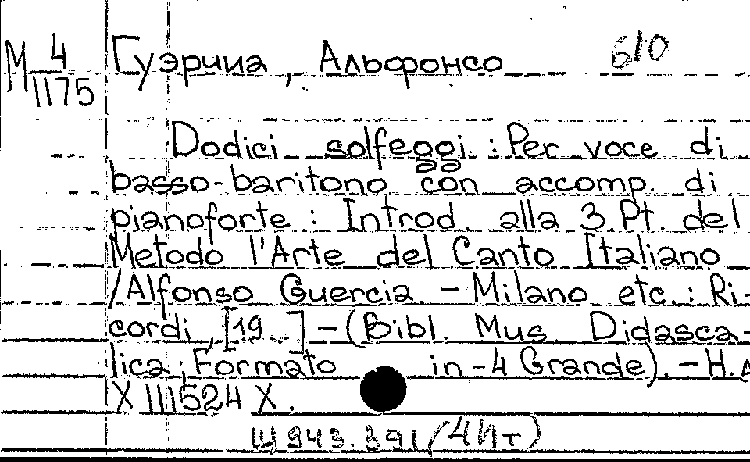 М 4/1175
Гуэрчиа, Альфонсо б/о
Dodici solfeggi : Per voce di
basso-baritono con accomp. di
pianoforte : Introd. alla 3 Pt. del
Metodo l'Arte del Canto Italiano
/Alfonso Guercia. - Milano etc. : Ri-
cordi, [19..] - (Bibl. Mus. Didasca-
lica ; Formato in-4 Grande). - Н.д.
X 111524 X.
Ш 943.391/(4Ит)